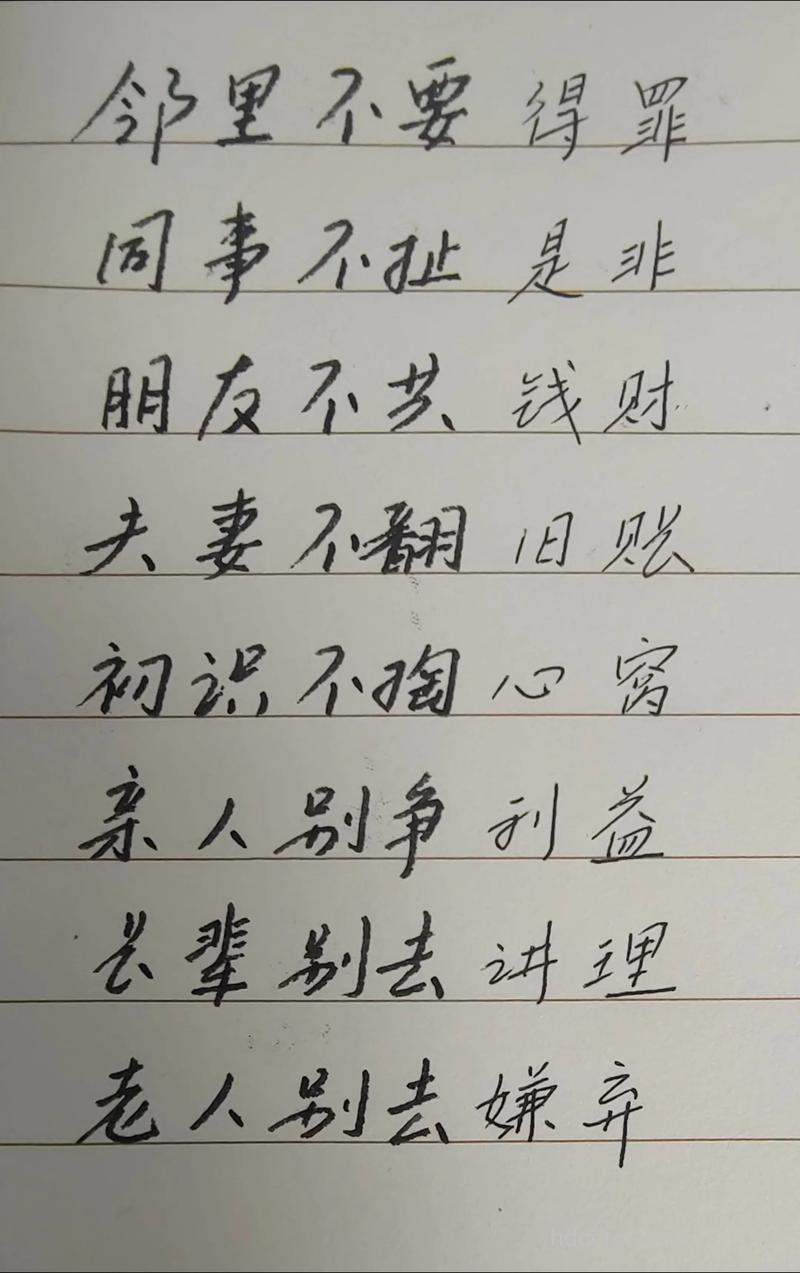 邻里不要得罪
同事不扯是非
朋友不共钱财
夫妻不翻旧账
初识不掏心窝
亲人别争利益
长辈别去讲理
老人别去嫌弃